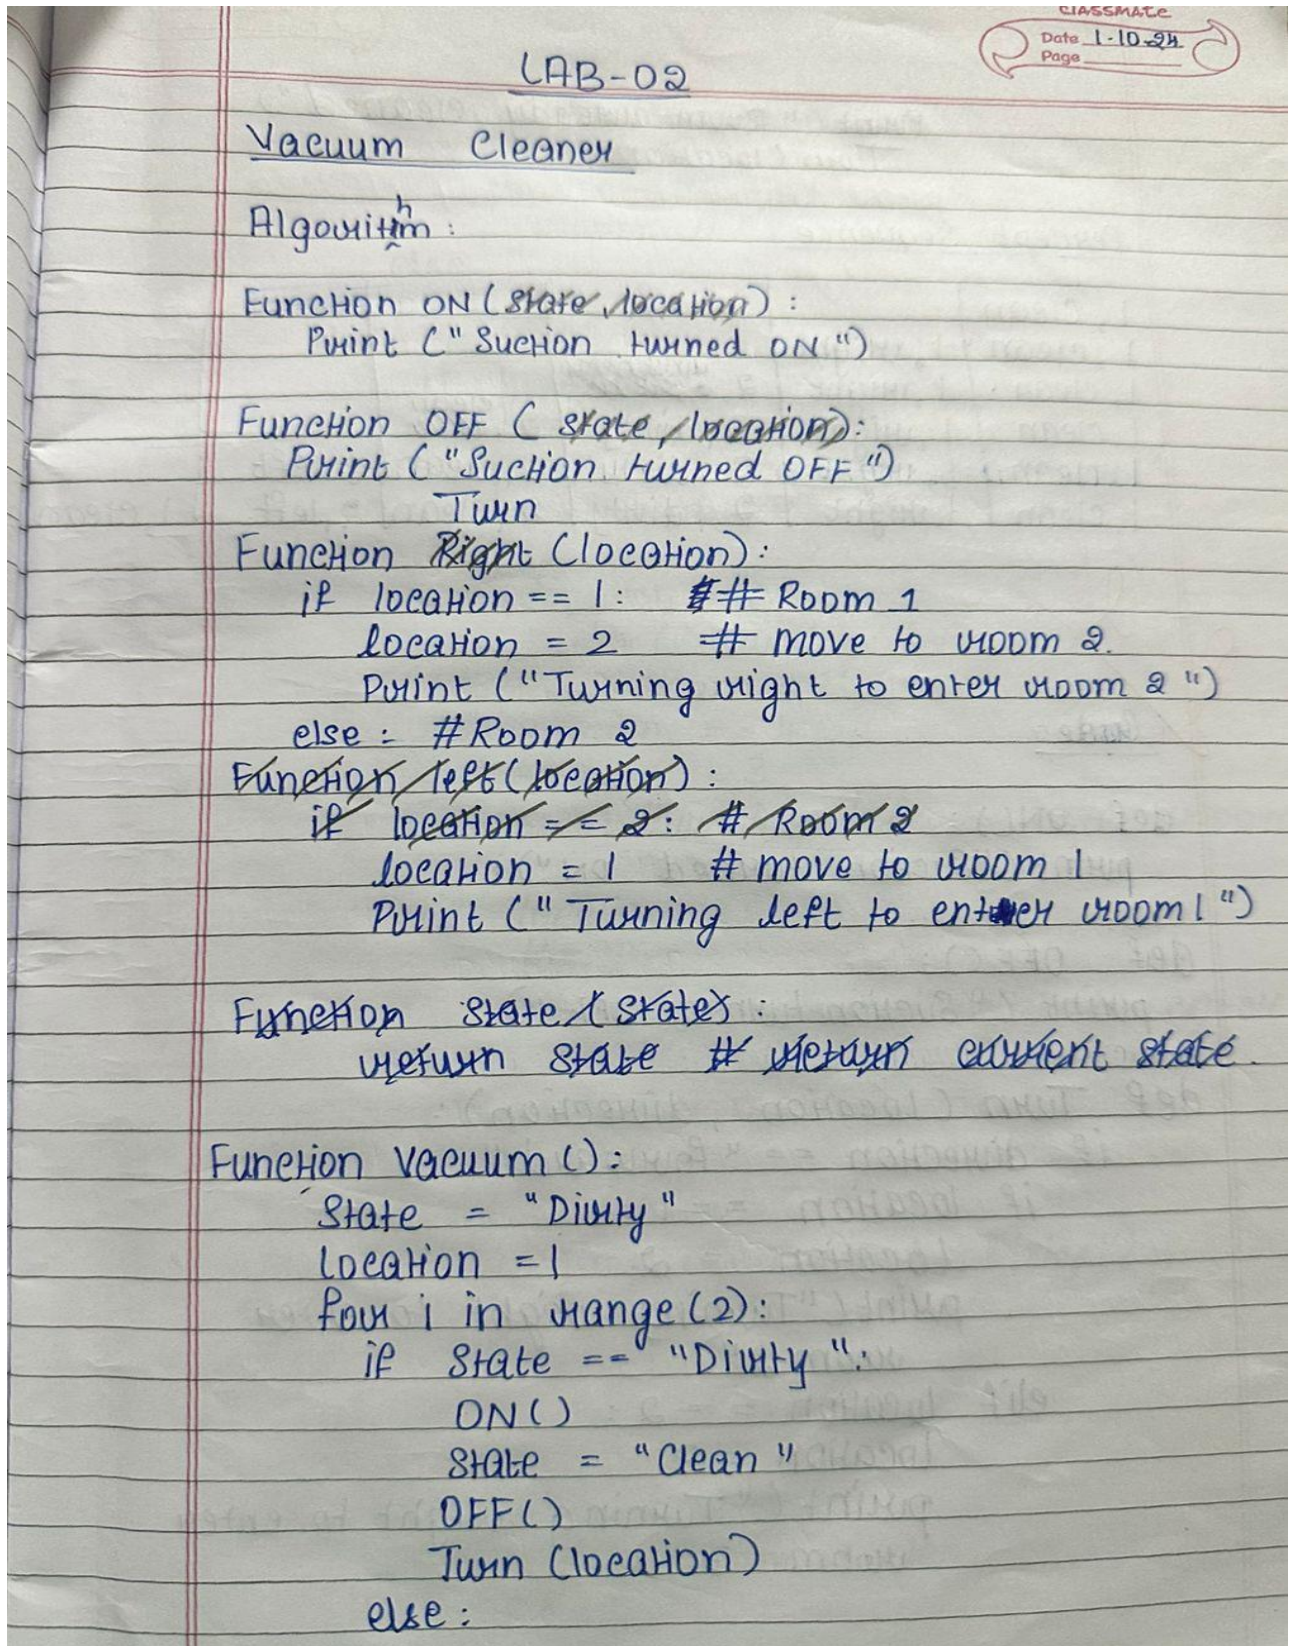 CLASSMATE
Date 1-10-24
Page
LAB-02
Vacuum Cleaner
Algorithm :
Function ON (state, location) :
Print (" Suction turned ON ")
Function OFF ( state, location):
Print ("Suction turned OFF ")
Turn
Function Right (location) :
if location == 1: # Room 1
location = 2 # move to room 2.
Print ("Turning right to enter room 2 ")
else : # Room 2
Function left (location) :
if location == 2: # Room 2
location = 1 # move to room 1
Print (" Turning left to enter room 1 ")
Function State (State) :
return State # return current state.
Function Vacuum () :
State = "Dirty"
location = 1
for i in range (2):
if State == "Dirty":
ON ()
State = "Clean"
OFF ()
Turn (location)
else :